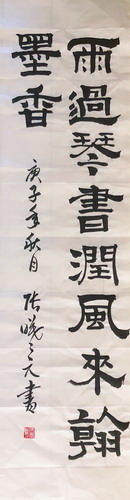 雨過琴書潤風來翰
墨香
庚子年秋月 張曉之元書